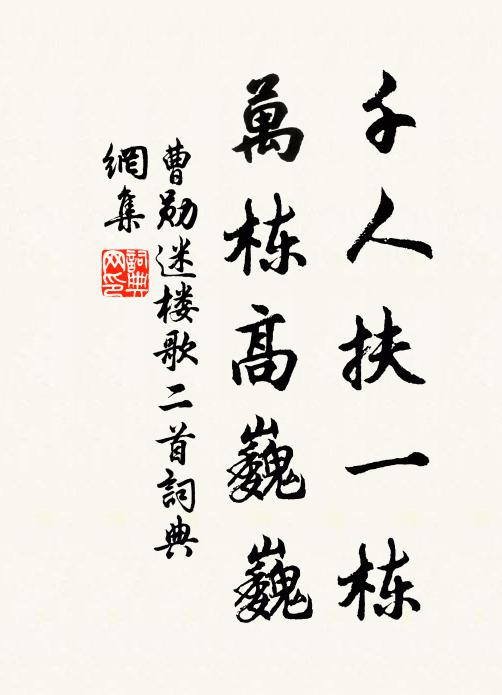 千人扶一栋
萬栋高巍巍
曹勛迷楼歌二首詞典
網集
詞典网印